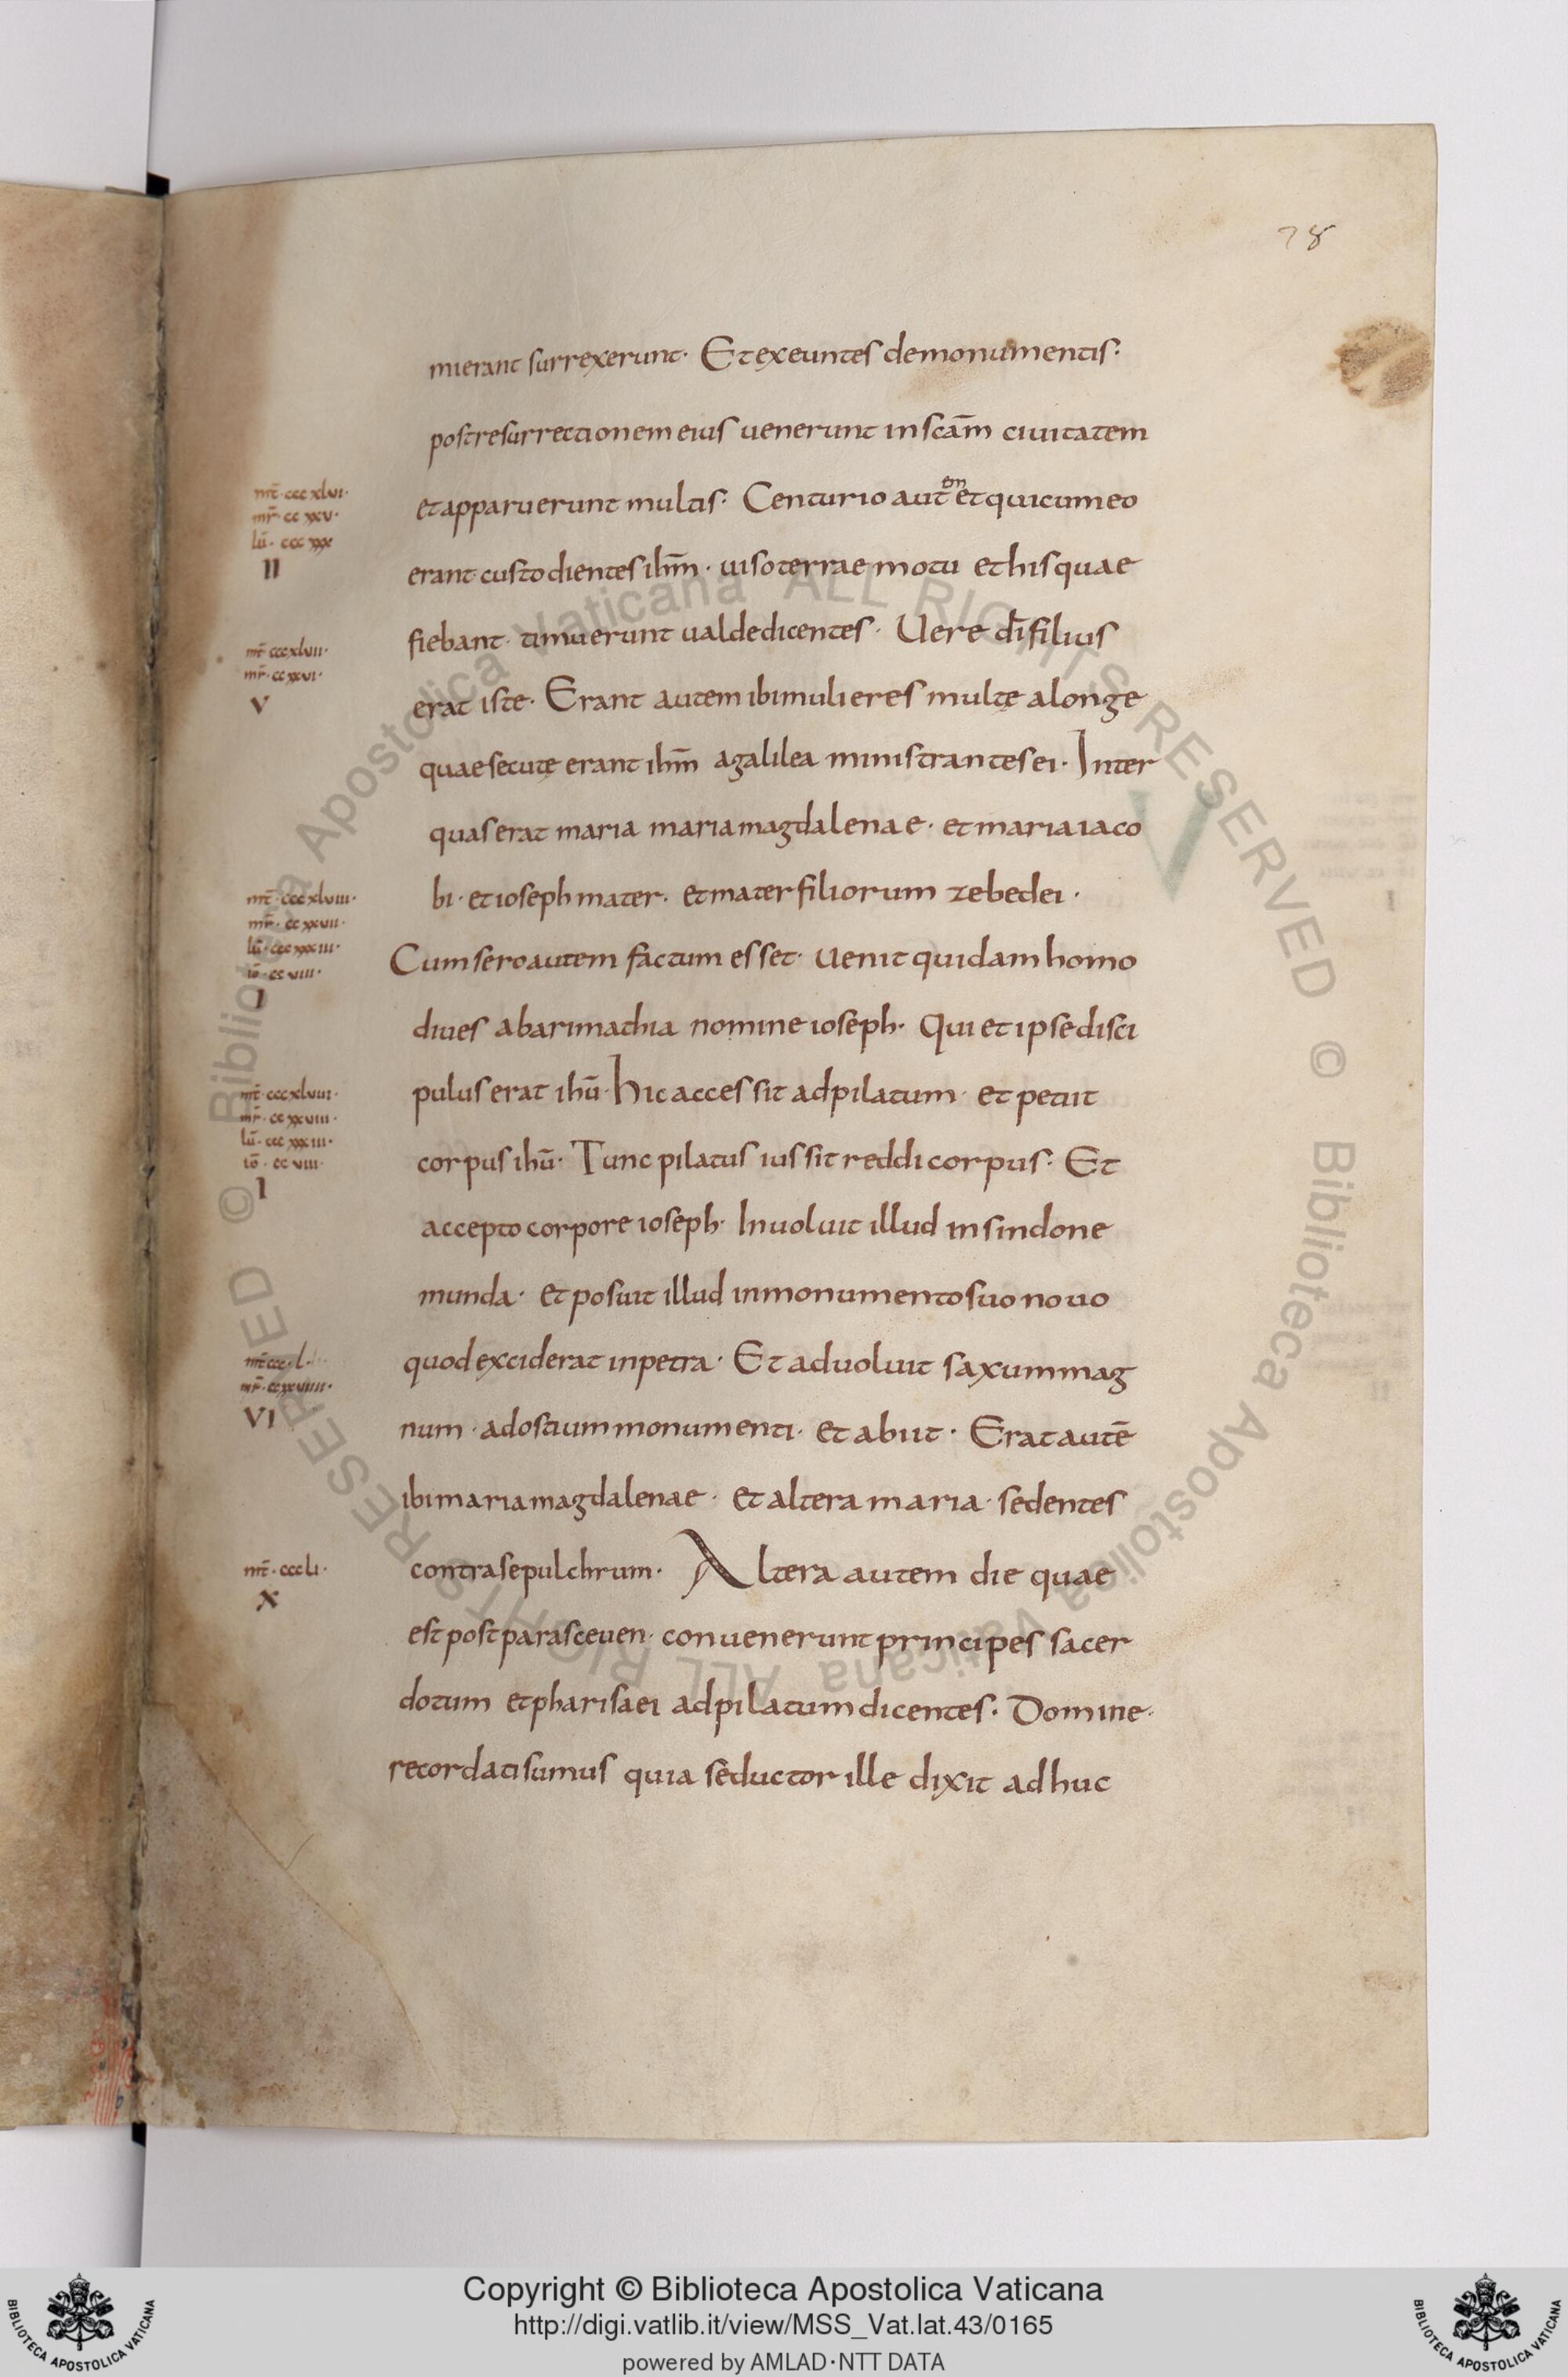 78
mierant surrexerunt· Et exeuntes de monumentis·
post resurrectionem eius uenerunt in scām ciuitatem
mt̄·cccxlvi·
mr̄·ccxxv·
lū·cccxxx
II
et apparuerunt multis· Centurio aut̄ēm et qui cum eo
erant custodientes ihm̄· uiso terrae motu et his quae
fiebant· timuerunt ualde dicentes· Uere dī filius
mt̄·cccxlvii·
mr̄·ccxxvi·
V
erat iste· Erant autem ibi mulieres multę a longe
quae secutę erant ihm̄ a galilea ministrantes ei· Inter
quas erat maria maria magdalenae· et maria iaco
bi· et ioseph mater· et mater filiorum zebedei·
mt̄·cccxlviii·
mr̄·ccxxvii·
lū·cccxxxiii·
iō·ccviii·
I
Cum sero autem factum esset· uenit quidam homo
diues ab arimathia nomine ioseph· Qui et ipse disci
mt̄·cccxlviiii·
mr̄·ccxxviii·
lū·cccxxxiii·
iō·ccviii·
I
pulus erat ihū· hic accessit ad pilatum· et petiit
corpus ihū· Tunc pilatus iussit reddi corpus· Et
accepto corpore ioseph· Inuoluit illud in sindone
munda· et posuit illud in monumento suo nouo
mt̄ccc·l·
mr̄·ccxxviiii·
VI
quod exciderat in petra· Et aduoluit saxum mag
num· ad ostium monumenti· et abiit· Erat autē
ibi maria magdalenae· et altera maria· sedentes
mt̄·cccli·
X
contra sepulchrum· Altera autem die quae
est post parasceuen· conuenerunt principes sacer
dotum et pharisaei ad pilatum dicentes· Domine·
recordati sumus quia seductor ille dixit adhuc
© Biblioteca Apostolica Vaticana ALL RIGHTS RESERVED © Biblioteca Apostolica Vaticana ALL RIGHTS RESERVED
Copyright © Biblioteca Apostolica Vaticana
http://digi.vatlib.it/view/MSS_Vat.lat.43/0165
powered by AMLAD·NTT DATA
BIBLIOTECA APOSTOLICA VATICANA
BIBLIOTECA APOSTOLICA VATICANA